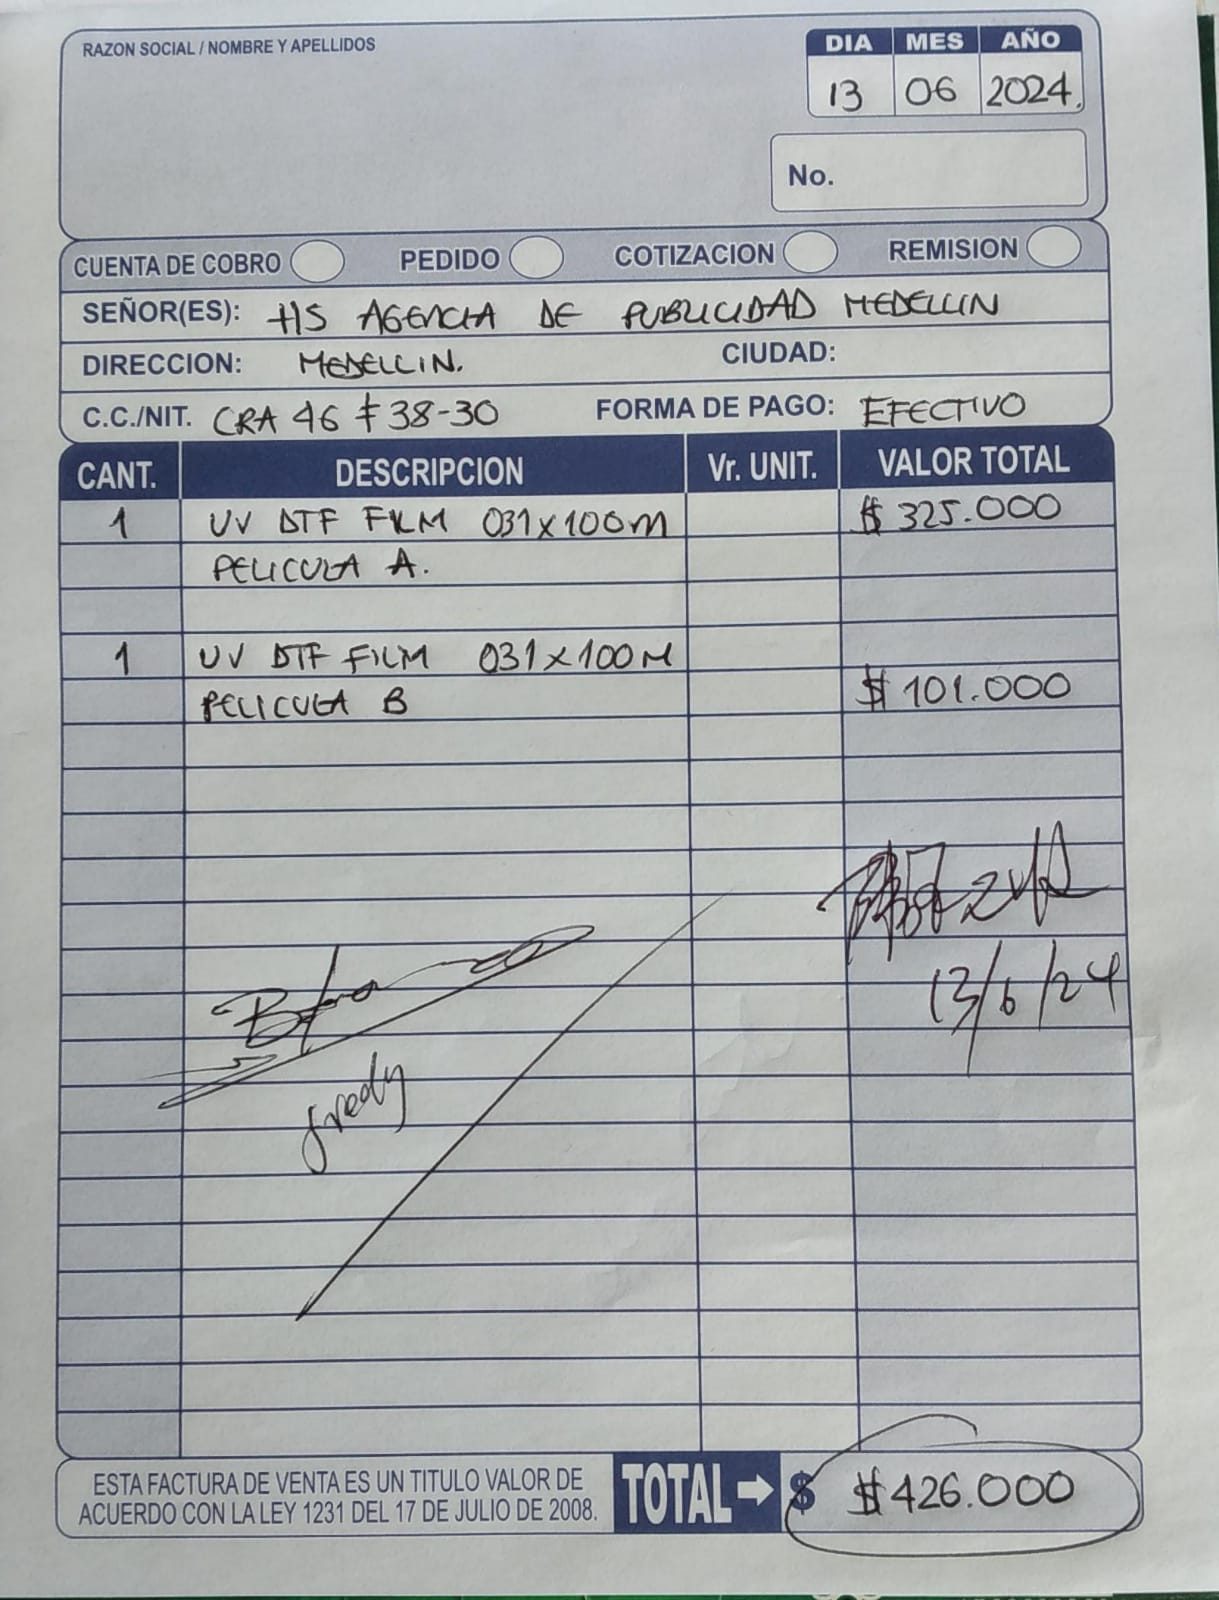 RAZON SOCIAL / NOMBRE Y APELLIDOS
DIA MES AÑO
13 06 2024.
No.
CUENTA DE COBRO PEDIDO COTIZACION REMISION
SEÑOR(ES): HS AGENCIA DE PUBLICIDAD MEDELLIN
DIRECCION: MEDELLIN. CIUDAD:
C.C./NIT. CRA 46 # 38-30 FORMA DE PAGO: EFECTIVO
CANT. DESCRIPCION Vr. UNIT. VALOR TOTAL
1 UV DTF FILM 031x100m $ 325.000
PELICULA A.
1 UV DTF FILM 031x100M
PELICULA B $ 101.000
13/6/24
fredy
ESTA FACTURA DE VENTA ES UN TITULO VALOR DE
ACUERDO CON LA LEY 1231 DEL 17 DE JULIO DE 2008.
TOTAL → $ $426.000